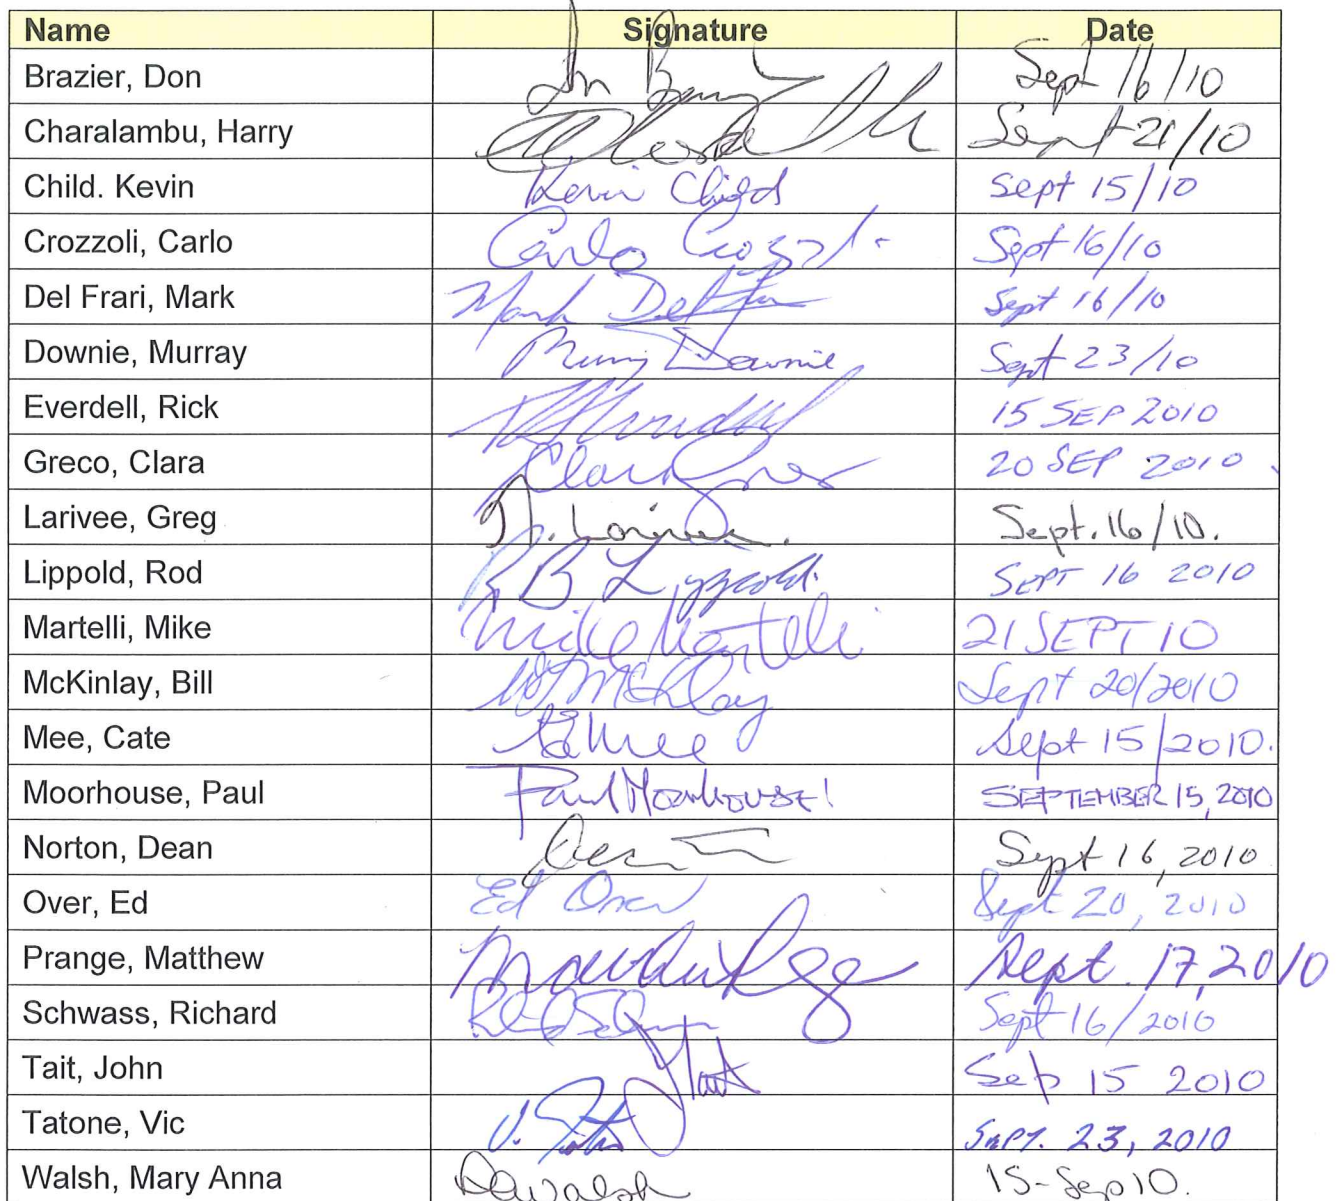 Name Signature Date
Brazier, Don Sept 16/10
Charalambu, Harry Sept 21/10
Child. Kevin Kevin Childs Sept 15/10
Crozzoli, Carlo Carlo Sept 16/10
Del Frari, Mark Mark Del Sept 16/10
Downie, Murray Downie Sept 23/10
Everdell, Rick 15 SEP 2010
Greco, Clara Clara 20 SEP 2010
Larivee, Greg Sept. 16/10.
Lippold, Rod RB Lippold. SEPT 16 2010
Martelli, Mike Mike Martelli 21 SEPT 10
McKinlay, Bill Sept 20/2010
Mee, Cate Sept 15/2010.
Moorhouse, Paul Paul Moorhouse SEPTEMBER 15, 2010
Norton, Dean Sept 16, 2010
Over, Ed Ed Over Sept 20, 2010
Prange, Matthew Sept. 17, 2010
Schwass, Richard Sept 16/2010
Tait, John Tait Sep 15 2010
Tatone, Vic V. SEPT. 23, 2010
Walsh, Mary Anna Walsh 15-Sep10.